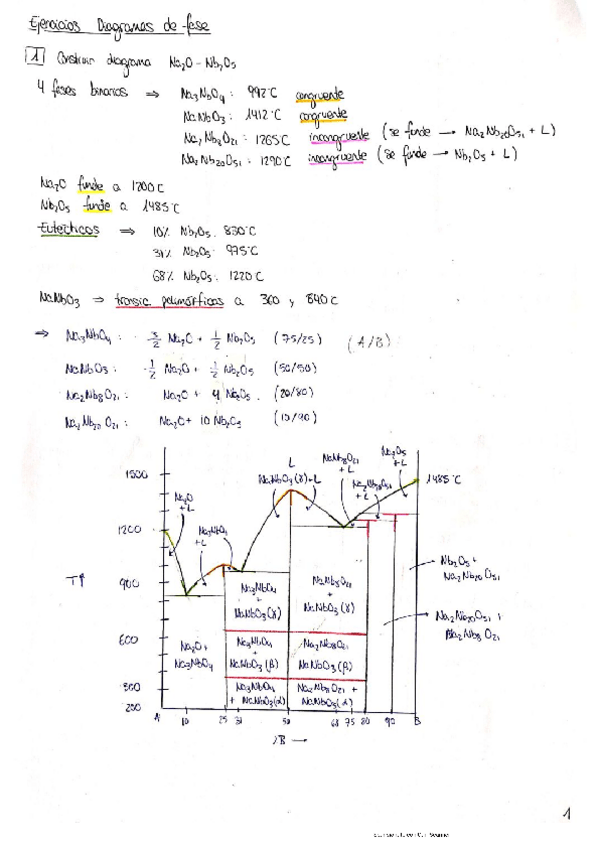 Ejercicios Diagramas de fase
1 Construir diagrama Na2O - Nb2O5
4 fases binarias ⇒ Na3NbO4 : 992°C congruente
NaNbO3 : 1412°C congruente
Na2Nb8O21 : 1265°C incongruente (se funde → Na2Nb20O51 + L)
Na2Nb20O51 : 1290°C incongruente (se funde → Nb2O5 + L)
Na2O funde a 1200°C
Nb2O5 funde a 1485°C
Eutécticos ⇒ 10% Nb2O5 : 830°C
31% Nb2O5 : 975°C
68% Nb2O5 : 1220°C
NaNbO3 ⇒ transic. polimórficas a 360 y 640°C
⇒ Na3NbO4 : 3/2 Na2O + 1/2 Nb2O5 (75/25) (A/B)
NaNbO3 : 1/2 Na2O + 1/2 Nb2O5 (50/50)
Na2Nb8O21 : Na2O + 4 Nb2O5 (20/80)
Na2Nb20O21 : Na2O + 10 Nb2O5 (10/90)
L
NaNbO3(γ)+L
NaNb8O21 + L
Na2Nb20O51 + L
Na2O5 + L
1485°C
1500
Na2O + L
Na3NbO4 + L
1200
T↑
900
600
300
200
Na3NbO4 + NaNbO3(γ)
Na2Nb8O21 + NaNbO3(γ)
Nb2O5 + Na2Nb20O51
Na2Nb20O51 + Na2Nb8O21
Na2O + Na3NbO4
Na3NbO4 + NaNbO3(β)
Na2Nb8O21 NaNbO3(β)
Na3NbO4 + NaNbO3(α)
Na2Nb8O21 + NaNbO3(α)
A 10 25 31 50 68 75 80 90 B
%B →
1